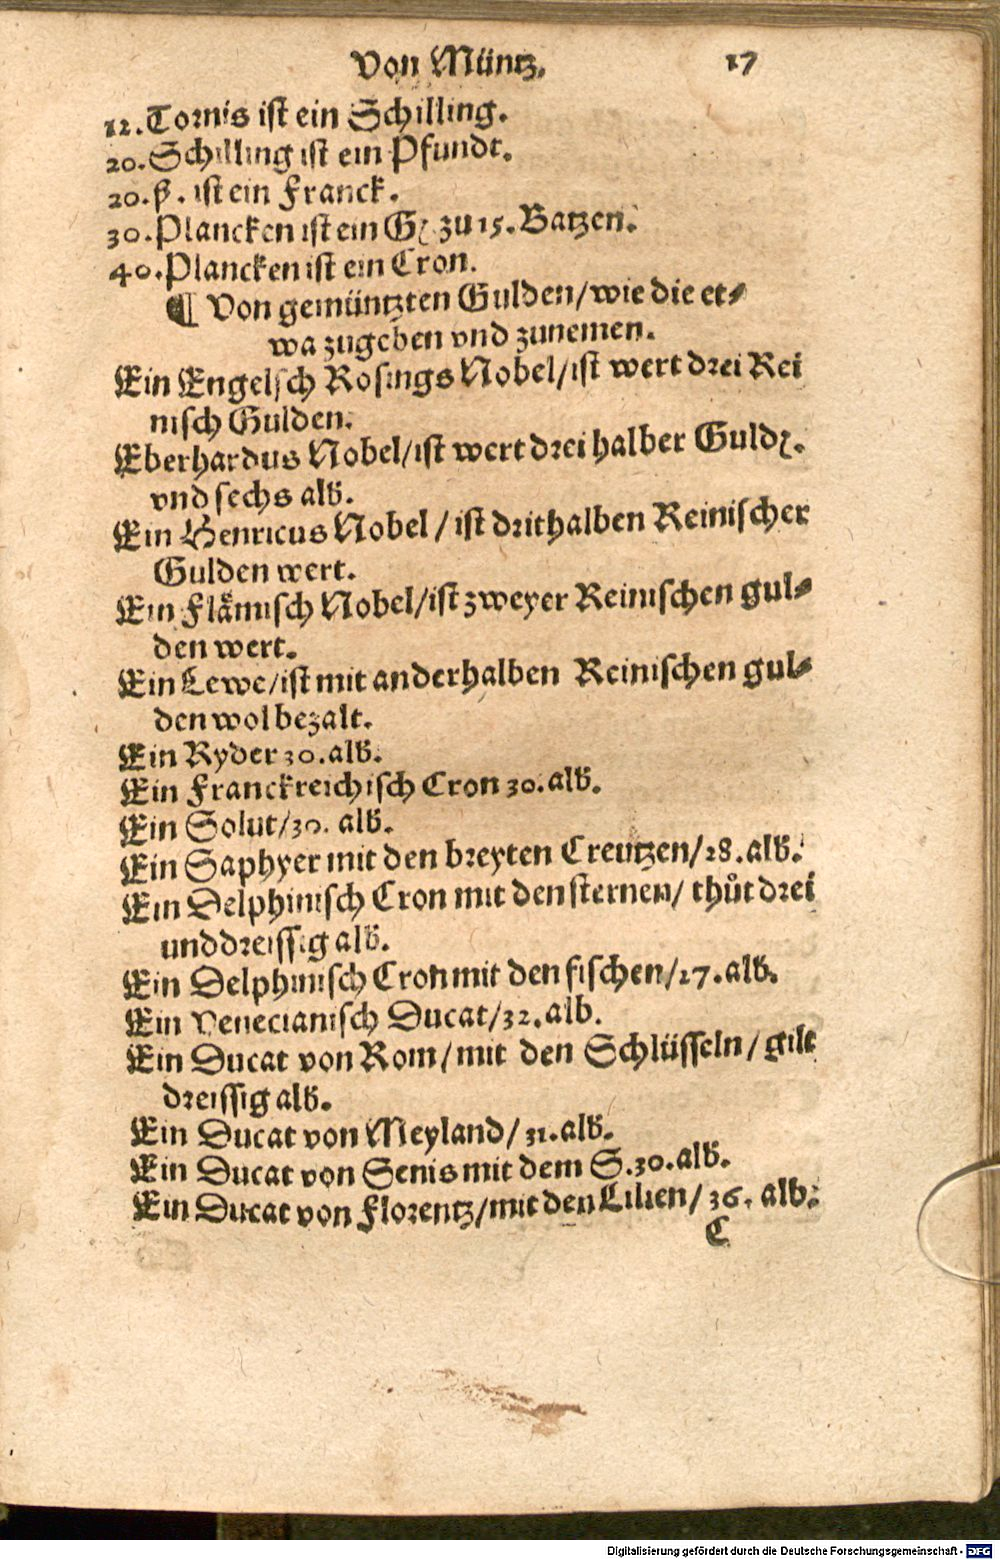 Von Müntz. 17
12. Tornis ist ein Schilling.
20. Schilling ist ein Pfundt.
20. ß. ist ein Franck.
30. Plancken ist ein Gꝛ zu 15. Batzen.
40. Plancken ist ein Cron.
¶ Von gemüntzten Gulden/wie die et⸗
wa zugeben vnd zunemen.
Ein Engelsch Rosings Nobel/ist wert drei Rei
nisch Gulden.
Eberhardus Nobel/ist wert drei halber Guldꝛ.
vnd sechs alb.
Ein Henricus Nobel/ist drithalben Reinischer
Gulden wert.
Ein Flämisch Nobel/ist zweyer Reinischen gul⸗
den wert.
Ein Lewe/ist mit anderhalben Reinischen gul⸗
den wol bezalt.
Ein Ryder 30. alb.
Ein Franckreichisch Cron 30. alb.
Ein Solut/30. alb.
Ein Saphyer mit den breyten Creutzen/28. alb.
Ein Delphinisch Cron mit den sternen/ thůt drei
unddreissig alb.
Ein Delphinisch Cron mit den fischen/27. alb.
Ein Venecianisch Ducat/32. alb.
Ein Ducat von Rom/mit den Schlüsseln/gilt
dreissig alb.
Ein Ducat von Meyland/31. alb.
Ein Ducat von Senis mit dem S. 30. alb.
Ein Ducat von Florentz/mit den Lilien/36. alb.
C
Digitalisierung gefördert durch die Deutsche Forschungsgemeinschaft - DFG